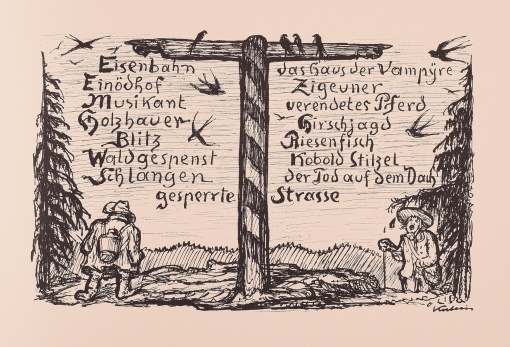 Eisenbahn
Einödhof
Musikant
Holzhauer
Blitz
Waldgespenst
Schlangen
das Haus der Vampÿre
Zigeuner
verendetes Pferd
Hirschjagd
Riesenfisch
Kobold Stilzel
der Tod auf dem Dach
gesperrte Strasse
Kubin